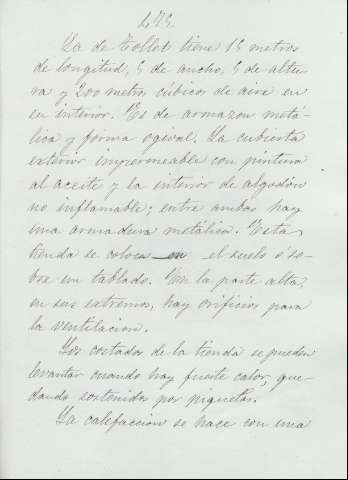 La de Tollet tiene 15 metros
de longitud, 5 de ancho, 5 de altu-
ra y 200 metros cúbicos de aire en
su interior. Es de armazon metá-
lica y forma ogival. La cubierta
exterior impermeable con pintura
al aceite y la interior de algodón
no inflamable; entre ambas hay
una armadura metálica. Esta
tienda se coloca en el suelo ó so-
bre un tablado. En la parte alta,
en sus extremos, hay orificios para
la ventilacion.
Los costados de la tienda se pueden
levantar cuando hay fuerte calor, que-
dando sostenidos por piquetas.
La calefaccion se hace con una